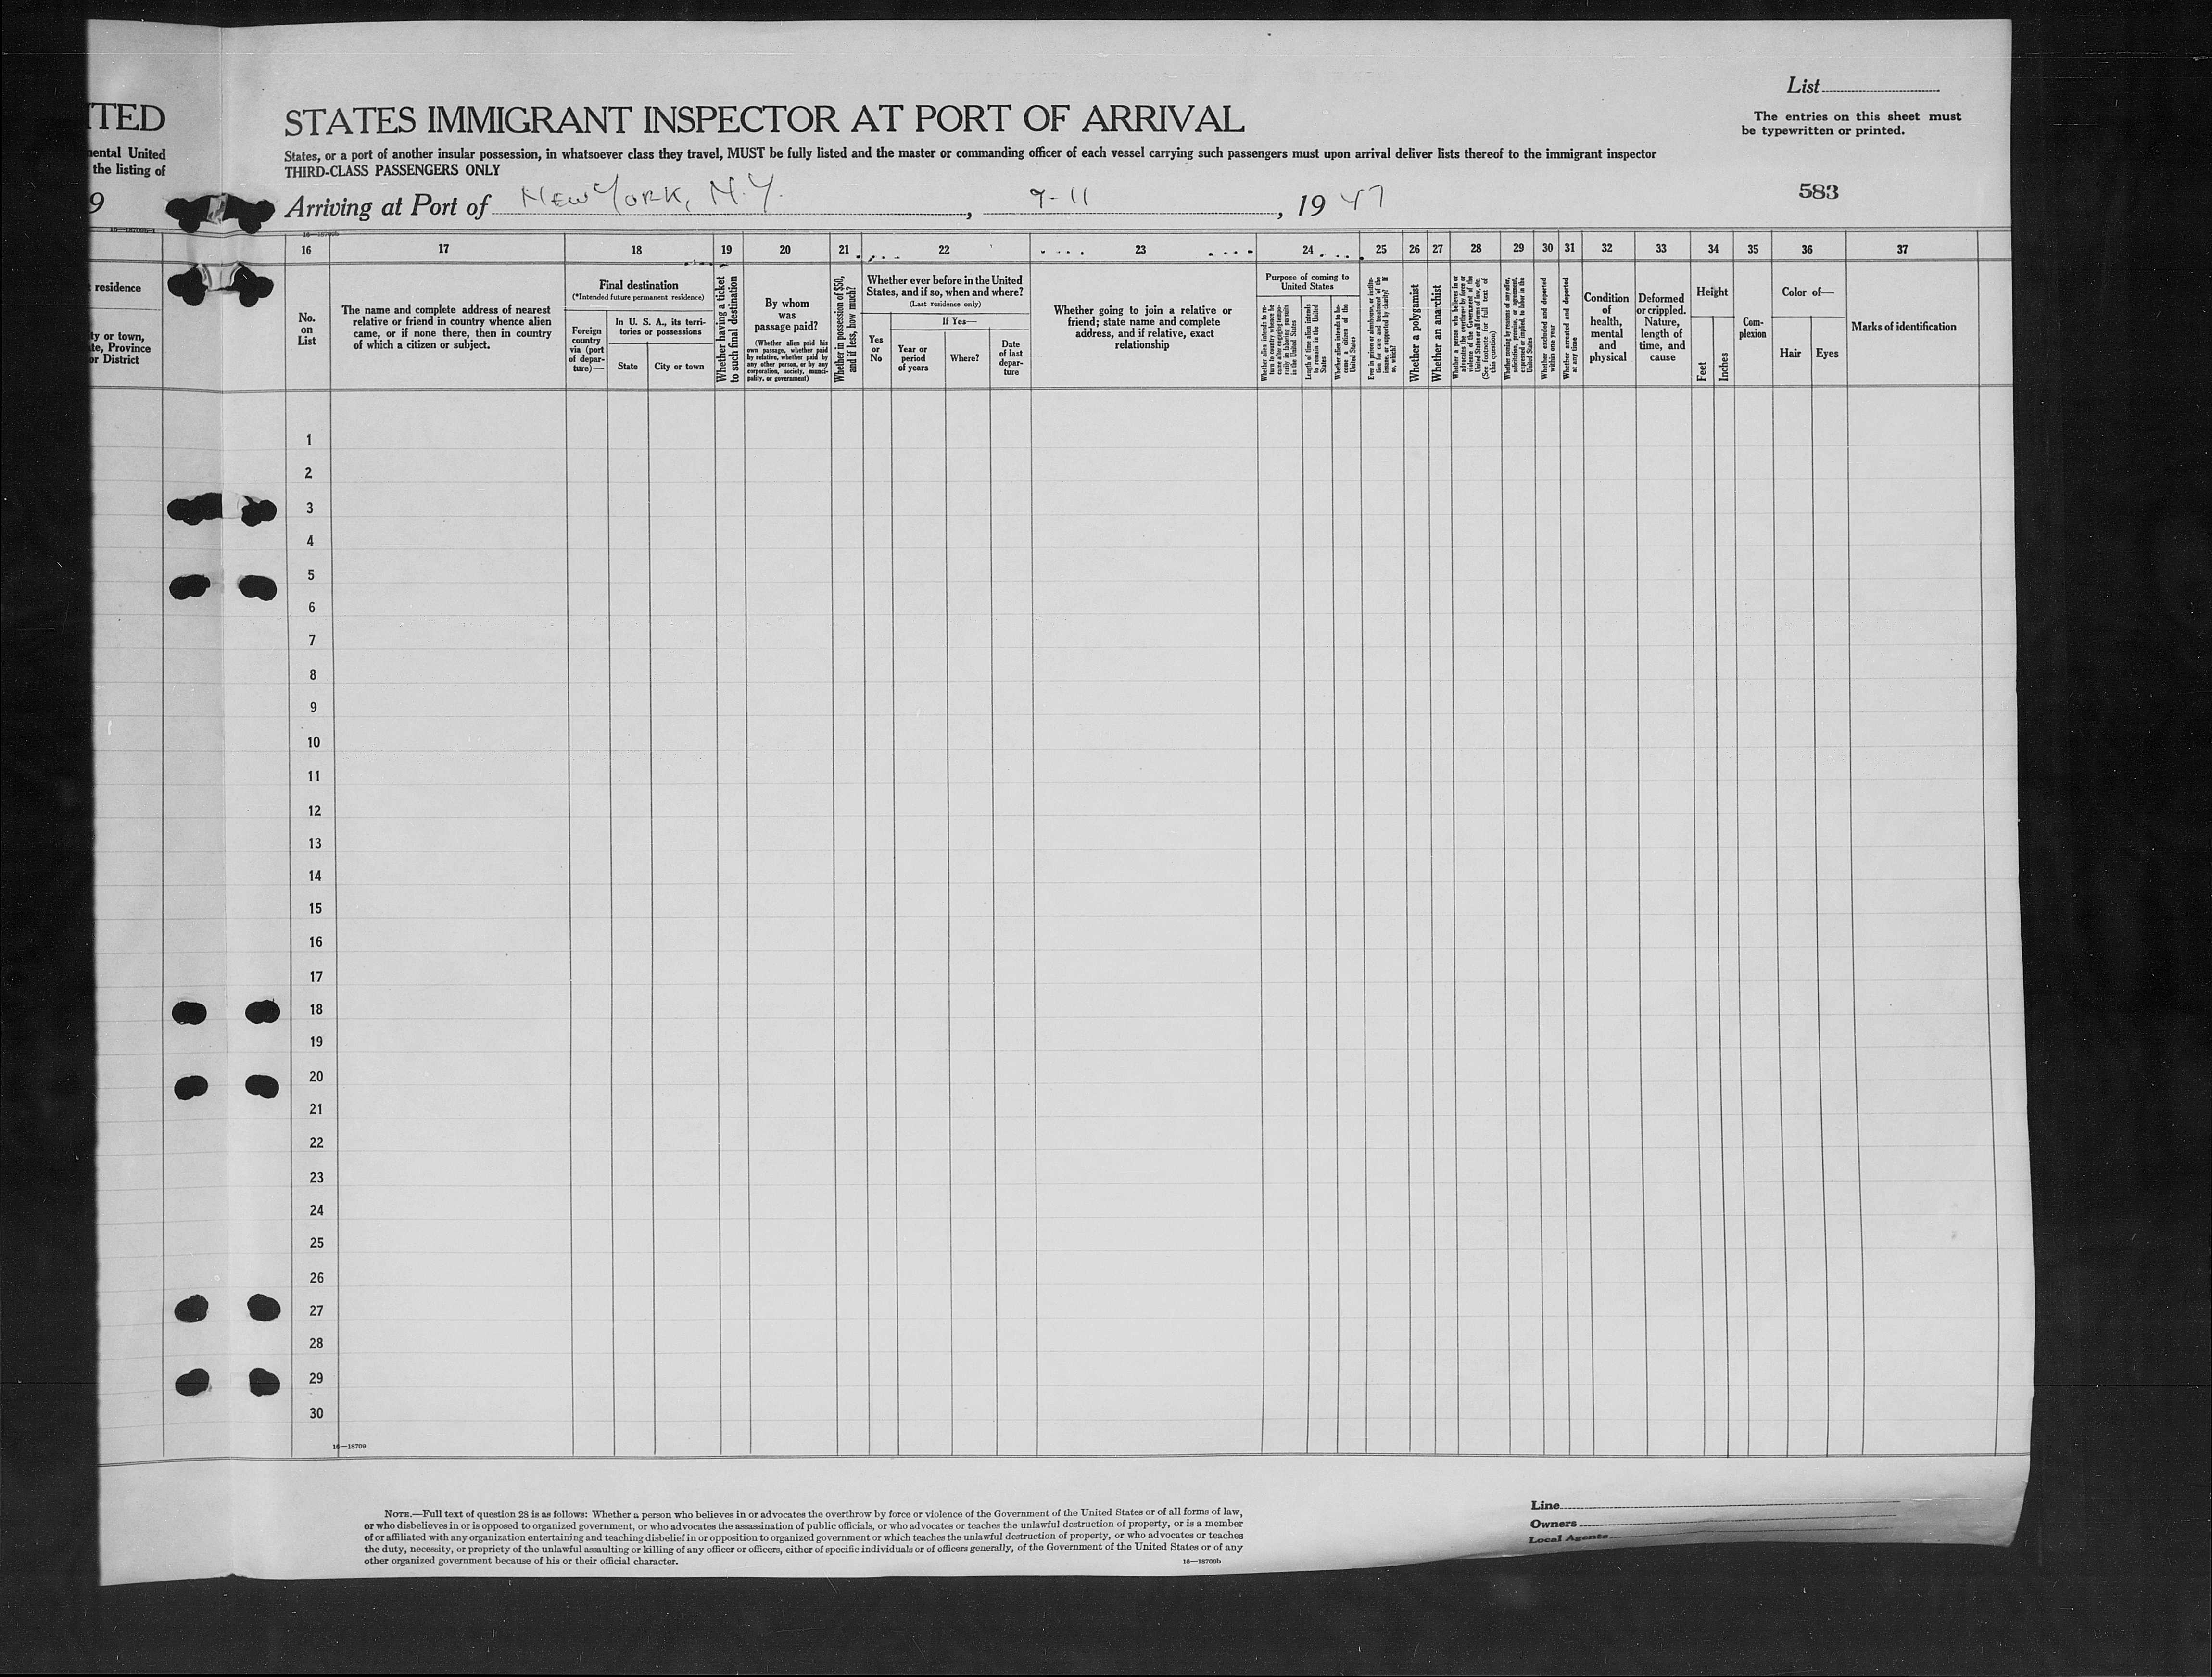 List
TED
STATES IMMIGRANT INSPECTOR AT PORT OF ARRIVAL
The entries on this sheet must
be typewritten or printed.
ental United
the listing of
States, or a port of another insular possession, in whatsoever class they travel, MUST be fully listed and the master or commanding officer of each vessel carrying such passengers must upon arrival deliver lists thereof to the immigrant inspector
THIRD-CLASS PASSENGERS ONLY
583
9
Arriving at Port of New York, N.Y., 9-11, 1947
16 17 18 19 20 21 22 23 24 25 26 27 28 29 30 31 32 33 34 35 36 37
residence
ty or town,
te, Province
or District
No.
on
List
The name and complete address of nearest
relative or friend in country whence alien
came, or if none there, then in country
of which a citizen or subject.
Final destination
(*Intended future permanent residence)
Foreign
country
via (port
of depar-
ture)—
In U. S. A., its terri-
tories or possessions
State
City or town
Whether having a ticket
to such final destination
By whom
was
passage paid?
(Whether alien paid his
own passage, whether paid
by relative, whether paid by
any other person, or by any
corporation, society, munici-
pality, or government)
Whether in possession of $50,
and if less, how much?
Whether ever before in the United
States, and if so, when and where?
(Last residence only)
Yes
or
No
If Yes—
Year or
period
of years
Where?
Date
of last
depar-
ture
Whether going to join a relative or
friend; state name and complete
address, and if relative, exact
relationship
Purpose of coming to
United States
Whether alien intends to re-
turn to country whence he
came after engaging tempo-
rarily in laboring pursuits
in the United States
Length of time alien intends
to remain in the United
States
Whether alien intends to be-
come a citizen of the
United States
Ever in prison or almshouse, or institu-
tion for care and treatment of the
insane, or supported by charity? If
so, which?
Whether a polygamist
Whether an anarchist
Whether a person who believes in or
advocates the overthrow by force or
violence of the Government of the
United States or all forms of law, etc.
(See footnote for full text of
this question)
Whether coming by reasons of any offer,
solicitation, promise, or agreement,
expressed or implied, to labor in the
United States
Whether excluded and deported
within one year
Whether arrested and deported
at any time
Condition
of
health,
mental
and
physical
Deformed
or crippled.
Nature,
length of
time, and
cause
Height
Feet
Inches
Com-
plexion
Color of—
Hair
Eyes
Marks of identification
1
2
3
4
5
6
7
8
9
10
11
12
13
14
15
16
17
18
19
20
21
22
23
24
25
26
27
28
29
30
16—18709
NOTE.—Full text of question 28 is as follows: Whether a person who believes in or advocates the overthrow by force or violence of the Government of the United States or of all forms of law,
or who disbelieves in or is opposed to organized government, or who advocates the assassination of public officials, or who advocates or teaches the unlawful destruction of property, or is a member
of or affiliated with any organization entertaining and teaching disbelief in or opposition to organized government or which teaches the unlawful destruction of property, or who advocates or teaches
the duty, necessity, or propriety of the unlawful assaulting or killing of any officer or officers, either of specific individuals or of officers generally, of the Government of the United States or of any
other organized government because of his or their official character.
16—18709b
Line
Owners
Local Agents